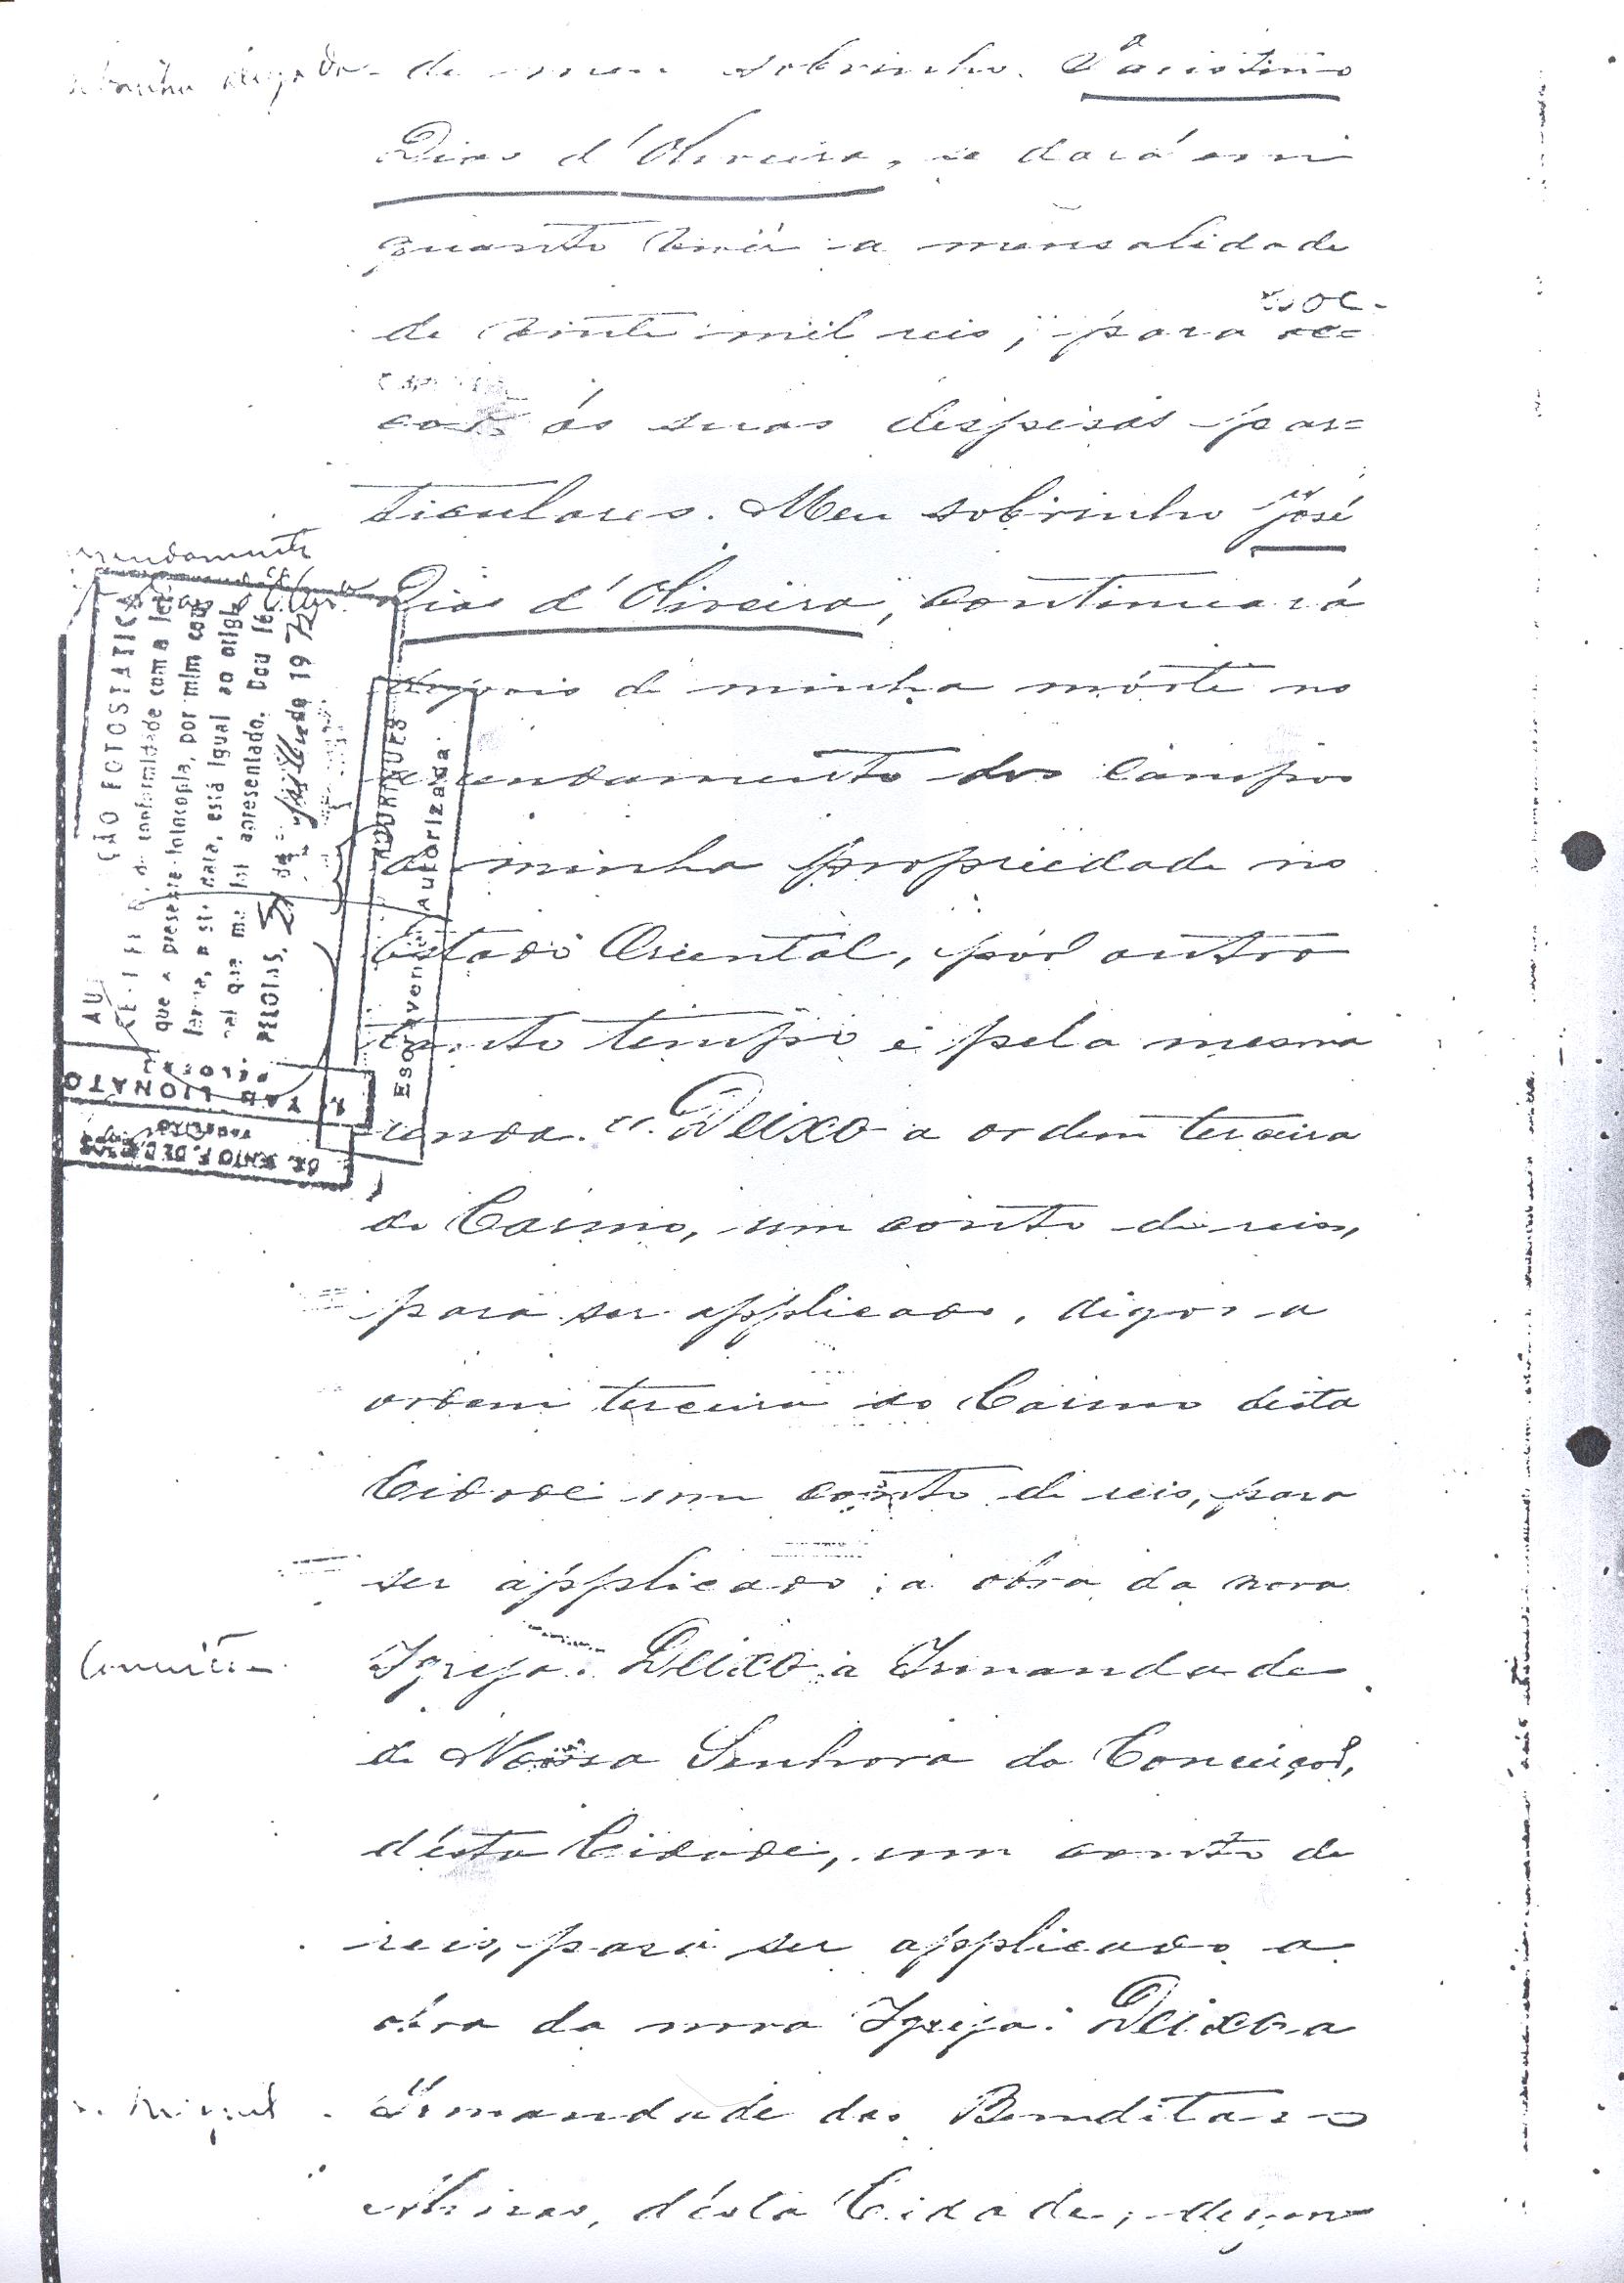 de meu sobrinho Faustino
Dias d'Oliveira, se dará em
quanto viver a mensalidade
de vinte mil reis, para
ás suas despesas par=
ticulares. Meu sobrinho José
Dias d'Oliveira, continuará
depois de minha mórte no
arrendamento dos Campos
de minha propriedade no
Estado Oriental, por outro
tanto tempo e pela mesma
renda. Deixo a ordem terceira
do Carmo, um conto de reis,
para ser applicado, digo, a
ordem terceira do Carmo desta
Cidade um conto de reis, para
ser applicado a obra da nova
Igreja. Deixo a Irmandade
de Nossa Senhora da Conceição,
d'esta Cidade, um conto de
reis, para ser applicado a
obra da nova Igreja. Deixo a
Irmandade das Bemditas
Almas, d'ésta Cidade,
arrendamento
Conceição
S. Miguel
FOTOSTATICA
conformidade com a lei
que a presente fotocopia, por mim
data, está igual ao origi-
nal que me foi apresentado. Dou fé
PELOTAS, de Julho de 19
RODRIGUES
Autorizada
TABELIONATO
PELOTAS